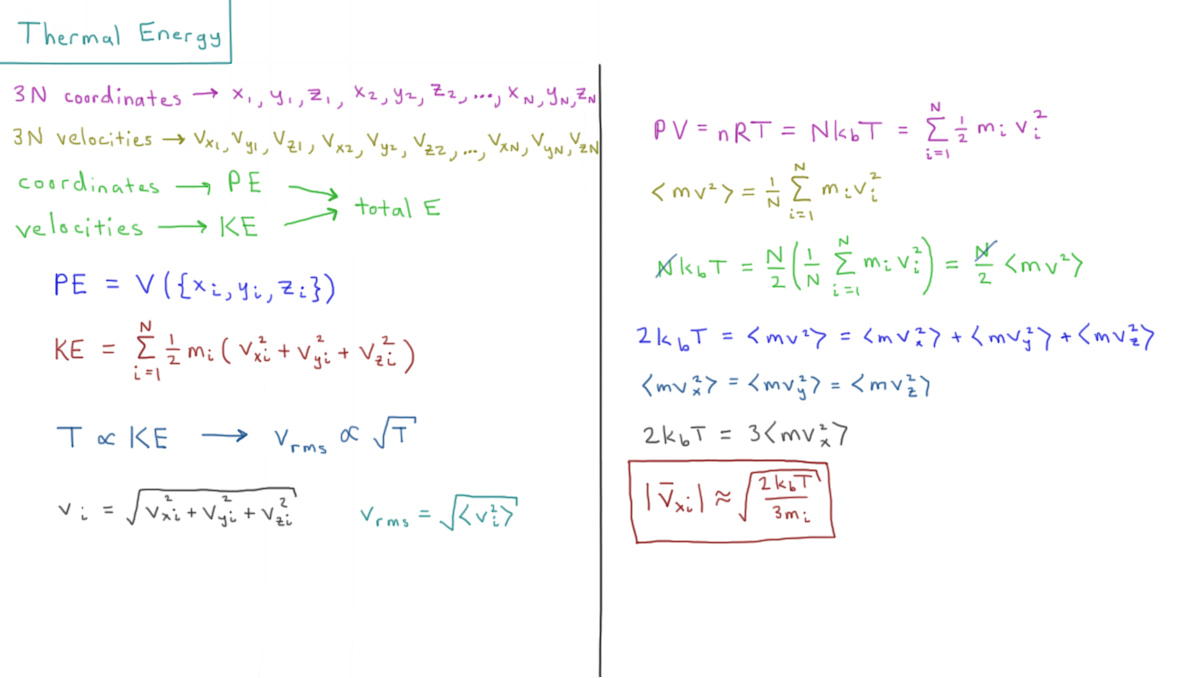 Thermal Energy
3N coordinates → x₁, y₁, z₁, x₂, y₂, z₂, ..., x_N, y_N, z_N
3N velocities → v_x1, v_y1, v_z1, v_x2, v_y2, v_z2, ..., v_xN, v_yN, v_zN
coordinates → PE
velocities → KE
total E
PE = V({x_i, y_i, z_i})
KE = Σ_{i=1}^{N} ½ m_i (v_xi² + v_yi² + v_zi²)
T ∝ KE → v_rms ∝ √T
v_i = √(v_xi² + v_yi² + v_zi²)  v_rms = √⟨v_i²⟩
PV = nRT = Nk_bT = Σ_{i=1}^{N} ½ m_i v_i²
⟨mv²⟩ = 1/N Σ_{i=1}^{N} m_i v_i²
Nk_bT = N/2 (1/N Σ_{i=1}^{N} m_i v_i²) = N/2 ⟨mv²⟩
2k_bT = ⟨mv²⟩ = ⟨mv_x²⟩ + ⟨mv_y²⟩ + ⟨mv_z²⟩
⟨mv_x²⟩ = ⟨mv_y²⟩ = ⟨mv_z²⟩
2k_bT = 3⟨mv_x²⟩
|v̄_xi| ≈ √(2k_bT / 3m_i)